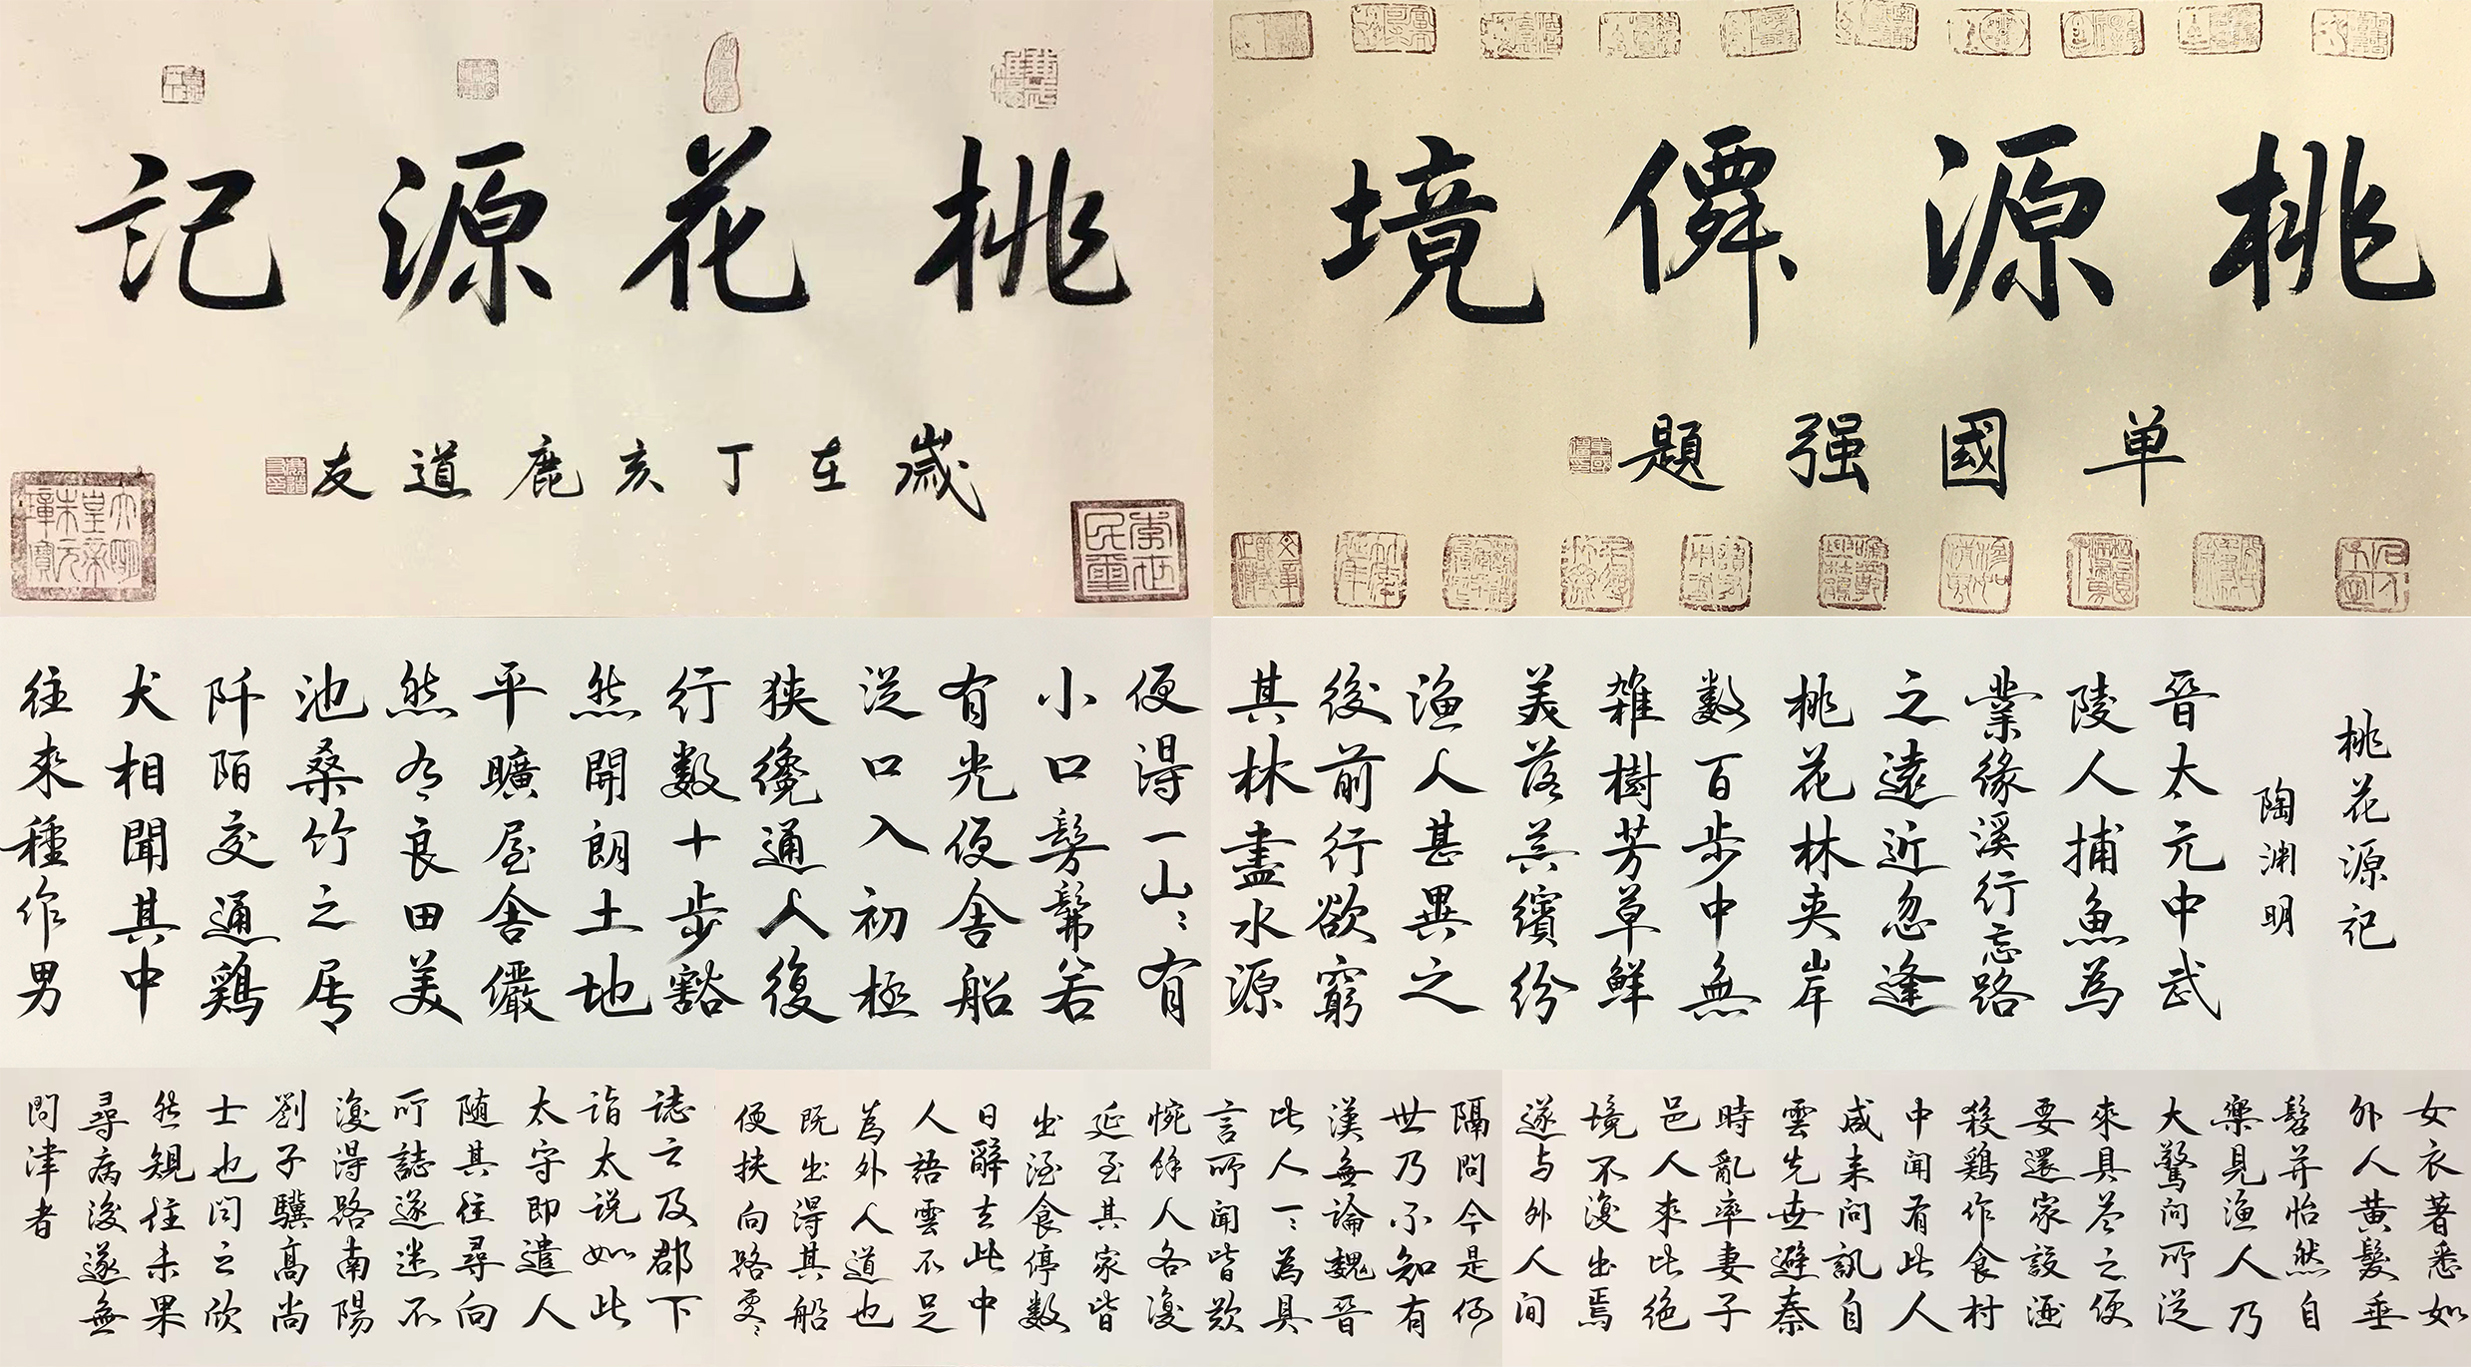 桃源僊境
单國强題
桃花源記
歲在丁亥鹿道友
桃花源記
陶渊明
晉太元中武
陵人捕魚為
業缘溪行忘路
之遠近忽逢
桃花林夹岸
数百步中無
雑樹芳草鮮
美落英繽纷
渔人甚異之
後前行欲窮
其林盡水源
便得一山〻有
小口髣髴若
有光便舍船
従口入初極
狭纔通人復
行数十步豁
然開朗土地
平曠屋舍儼
然有良田美
池桑竹之居
阡陌交通鷄
犬相聞其中
往來種作男
女衣著悉如
外人黄髮垂
髫并怡然自
樂見渔人乃
大驚问所従
來具答之便
要還家設酒
殺鷄作食村
中闻有此人
咸来问訊自
雲先世避秦
時亂率妻子
邑人來此绝
境不復出焉
遂与外人间
隔問今是何
世乃不知有
漢無論魏晉
此人一〻為具
言所闻皆歎
惋馀人各復
延至其家皆
出酒食停数
日辭去此中
人語雲不足
為外人道也
既出得其船
便扶向路雯〻
誌之及郡下
詣太说如此
太守即遣人
随其往尋向
所誌遂迷不
復得路南陽
劉子驥高尚
士也闻之欣
然規往未果
尋病後遂無
問津者